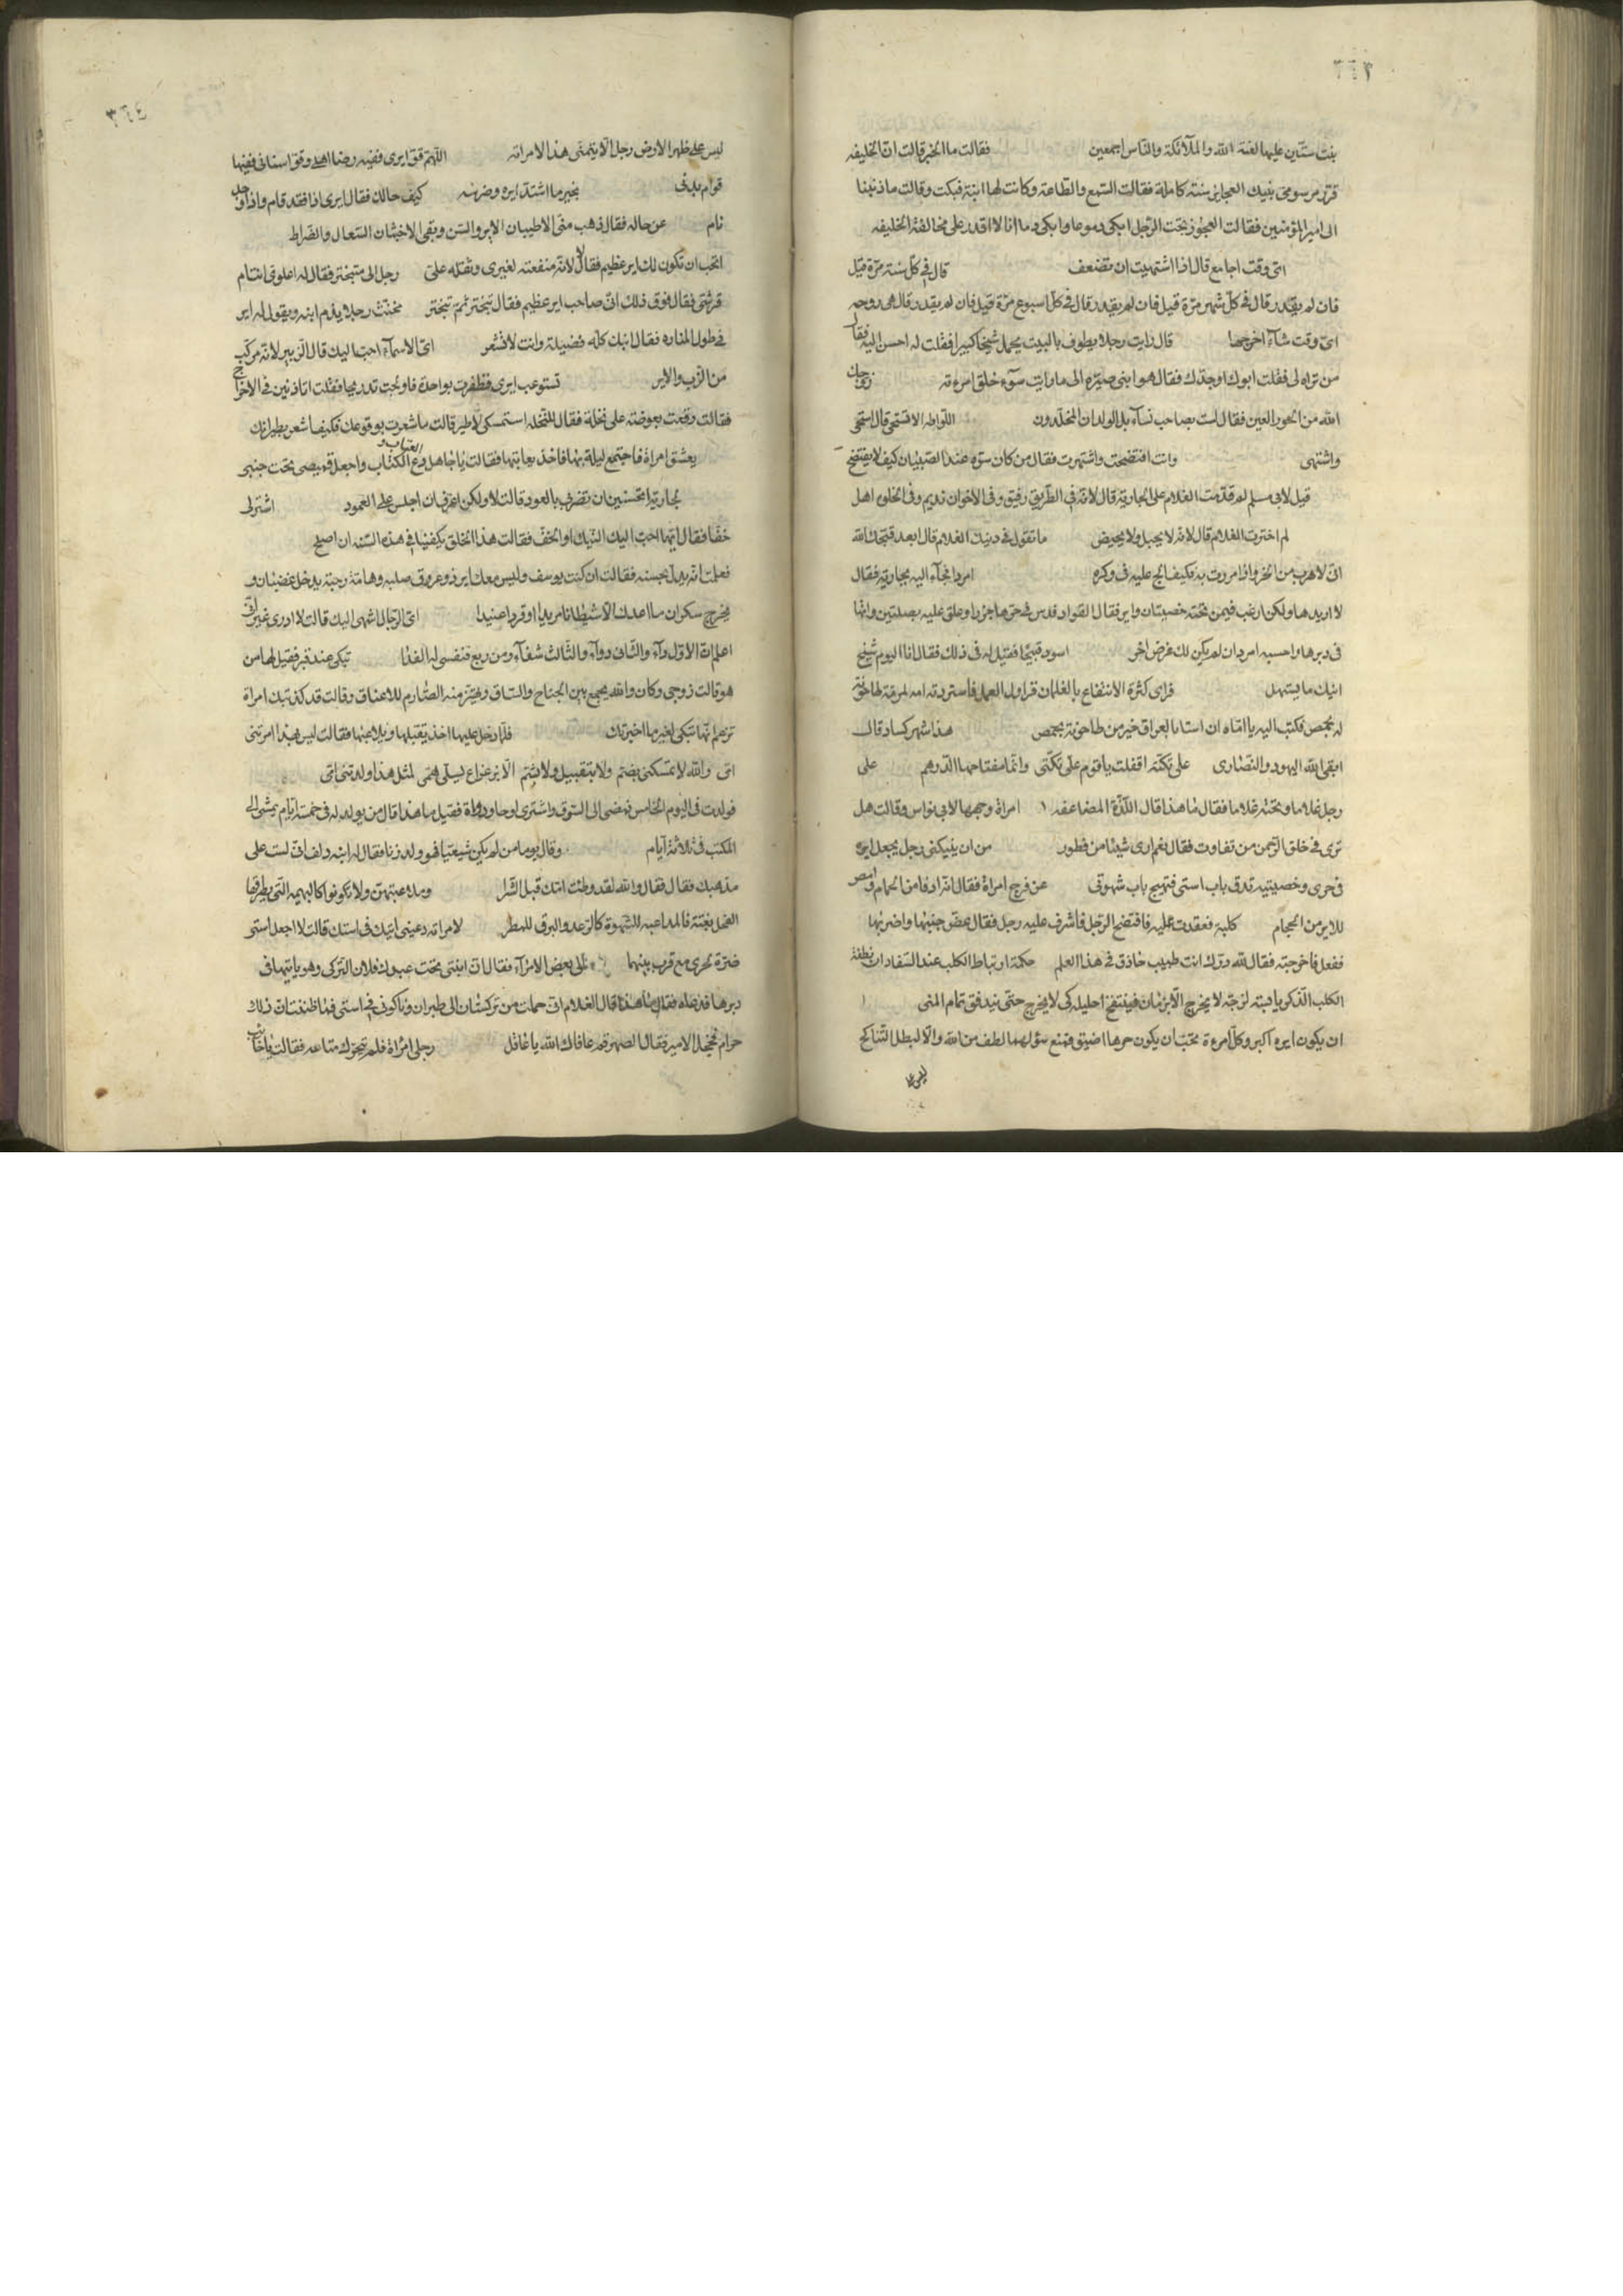 ٣٦٣
بنت ستّين عليها لعنة الله والملآئكة والنّاس اجمعين فقالت ما الخبر قالت انّ الخليفه
بنيك العجايز سنة كاملة فقالت السّمع والطّاعة وكانت لها ابنة فبكت وقالت ما ذنبنا
الى امير المؤمنين فقالت العجوز تحت الرّجل ابكى دموعا وابكى دما انا لا اقدر على مخالفة الخليفه
اىّ وقت اجامع قال اذا اشتهيت ان تضعف قال فى كلّ سنة مرّة قيل
فان لم يقدر قال فى كلّ شهر مرّة قيل فان لم يقدر قال فى كلّ اسبوع مرّة قيل فان لم يقدر قال هى روحه
اىّ وقت شآء اخرجها قال رايت رجلا يطوف بالبيت يحمل شيخا كبيرا فقلت له احسن اليه فقال
من تراه لى فقلت ابوك او جدّك فقال هو ابنى صيّره الى ما رايت سوء خلق امرءته زوجك
الله من الحور العين فقال لست بصاحب نسآء بل الولدان المخلّدون اللواطه الا تستحى قال استحى
واشتهى وانت افتضحت واشتهرت فقال من كان سرّه عند الصّبيان كيف لا يفتضح
قيل لابى مسلم لم قدّمت الغلام على الجارية قال لانّه فى الطّريق رفيق وفى الاخوان نديم وفى الخلوه اهل
لم اخترت الغلام قال لانّه لا يحبل ولا يحيض ما تقول فى الغلام قال ابعد قبّحك الله
انّى لاهرب من الحرّ واذا مررت به فكيف الج عليه فى وكره امردا فجآء اليه بجارية فقال
لا اريدها ولكن ارغب فيمن تحته خصيتان واير فقال القوّاد فدسّ فى حرها جزرا وعلّق عليه بصلتين واتها
فى دبرها واحسبه امرد ان لم يكن لك غرض اخر اسود قبيحا فقيل له فى ذلك فقال انا اليوم شيخ
انيك ما يتسهل فراى كثرة الانتفاع بالغلمان العمل فاستردته امه
له بحمص فكتب اليه يا امّاه ان استا بالعراق خير من طاحونة بحمص هذا شهر كساد قال
ابقى الله اليهود والنّصارى على تكّته اقفلت يا قوم على تكّتى وانّما مفتاحها الدّرهم على
رجل غلاما وتحته غلاما فقال ما هذا قال اللّذّة المضاعفه امراة وجهها لابى نواس وقالت هل
ترى فى خلق الرّحمن من تفاوت فقال نعم ارى شيئا من فطور من ان ينيكنى رجل يجعل ايره
فى حرى وخصيتيه تدق باب استى فتهيج باب شهوتى عن فرج امراة فقال انّه ادفا من الحمام وامصّ
للاير من الحجام كلبة فعقدت عليه فافتضح الرّجل فاشرف عليه رجل فقال عضّ جنبها واضربها
ففعل فاخرجته فقال لله درّك انت طبيب حاذق فى هذا العلم حكمة ارتباط الكلب عند السّفاد انّ نطفة
الكلب الذّكر يابسة لزجة لا يخرج الّا بزمان فينتفخ احليله كى لا يخرج حتّى يندفق تمام المنى
ان يكون ايره اكبر وكلّ امرءة تحبّ ان يكون حرها اضيق فمنع سؤلهما لطف من الله والّا لبطل التّناكح
ليس على
٣٦٤
ليس على ظهر الارض رجل الّا يتمنّى هذا الا مراته اللّهمّ قوّ ايرى ففيه رضا اهلى وقوّ اسنانى ففيها
قوام بدنى بخير ما اشتدّ ايره وضرسه كيف حالك فقال ايرى اذا فقد قام واذا وجد
نام عن حاله فقال ذهب منّى الاطيبان الاير والسّن وبقى الاخبثان السّعال والضّراط
اتحب ان تكون لك اير عظيم فقال لا لانّ منفعته لغيرى وثقله علىّ رجل الى متبختر فقال له اعلوى انت ام
قرشى فقال فوق ذلك انّى صاحب اير عظيم فقال تبختر ثمّ تبختر مخنّث رجلا يذم ابنه ويقول له اير
فى طول المناره فقال ابنك كلّه فضيلة وانت لا تشعر اىّ الاسمآء احبّ اليك قال الزّبير لانّه مركّب
من الزّب والاير تستوعب ايرى فظفرت بواحدة فاولجت تدريجا فقلت اتاذنين فى الاخراج
فقالت وقعت بعوضة على نخلة فقال للنّخله استمسكى لاطير قالت ما شعرت بوقوعك فكيف اشعر بطيرانك
يعشق امراة فاجتمع ليلة بها فاخذ يعاتبها فقالت يا جاهل دع العتاب و الكتاب واجعل قميصى تحت جنبى
لجارية اتحسنين ان تضرب بالعود قالت لا ولكن اعرف ان اجلس على العمود اشترى
خفّا فقال ايّهما احبّ اليك النّيك او الخفّ فقالت هذا الخلق يكفينى فى هذه السّنة ان اصلح
فعلت انّه يدلّ بحسنه فقالت ان كنت يوسف وليس معك اير ذو عروق صلبة وهامة رحبة يدخل غضبان و
يخرج سكران ما اعدّك الّا شيطانا مريدا او قردا عنيدا اىّ الرّجال اشهى اليك قالت لا ادرى غير انّى
اعلم انّ الاوّل دآء والثّانى دوآء والثّالث شفآء ومن ربع فنفسى له الفدا تبكى عند قبر فقيل لها من
هو قالت زوجى وكان والله يجمع بين الجناح والسّاق ويهتزّ منه الصّارم للاعناق وقالت قد كذبتك امراة
تزعم انّها تبكى لغير ما اخبرتك فلمّا دخل عليها اخذ يقبّلها ويلاعبها فقالت ليس بهذا امرتنى
امّى والله لا تمسكنى بضمّ ولا بتقبيل ولا بشمّ الّا بزعزاع يسلّى همّى لمثل هذا ولدتنى امّى
فولدت فى اليوم الخامس فمضى الى السّوق واشترى لوحا ودواة فقيل ما هذا قال من يولد له فى خمسة ايّام يمشى الى
المكتب فى ثلاثة ايّام وقال يوما من لم يكن شيعيّا فهو ولد زنا فقال له ابنه دلف انّى لست على
مذهبك فقال والله لقد وطئت امّك قبل الشّرا وملاعبتهنّ ولا تكونوا كالبهيمه الّتى يطرقها
الفحل بغتة فالمداعبه للشّهوة كالرّعد والبرق للمطر لامراته دعينى انيك فى استك قالت لا اجعل استى
ضرّة لحرى مع قرب بينهما الى بعض الامرآء فقال انّ ابنتى تحت عبدك فلان التّركى وهو ياتيها فى
دبرها فدعاه فقال ما هذا قال الغلام انّى حملت من تركستان الى طبران وناكونى فى استى فما ظننت انّ ذلك
حرام فخجل الامير فقال لصهره قم عافاك الله يا غافل رجل امراة فلم يتحرّك متاعه فقالت يا خايب